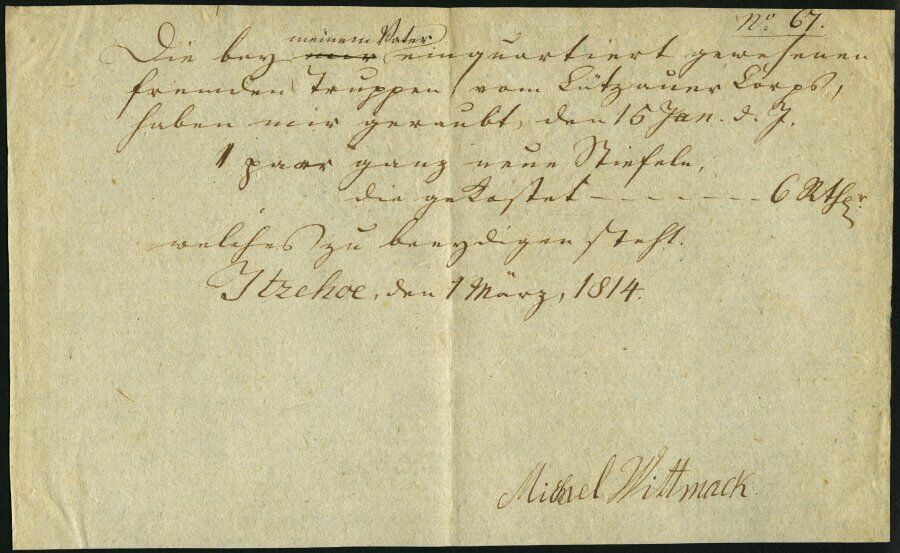 No 67.
meinem Vater
Die bey mir einquartiert gewesenen
fremden Truppen vom Lützauer Corps,
haben mir geraubt, den 15 Jan. d. J.
1 paar ganz neue Stiefeln,
die gekostet - - - - - - - 6 Rthlr
welches zu beeydigen steht.
Itzehoe, den 1 März, 1814.
Michael Wittmack